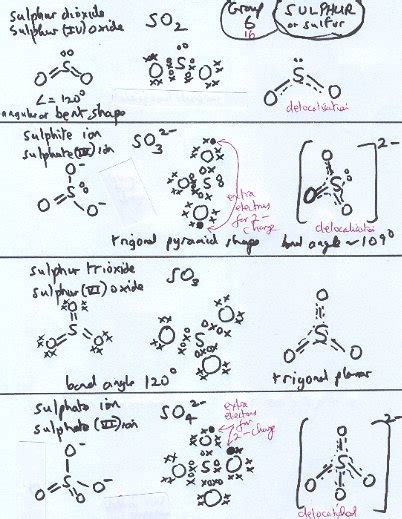 sulphur dioxide
sulphur (IV) oxide
SO2
Group
6
16
SULPHUR
or sulfur
S
O
O
∠= 120°
angular or bent shape
O S O
S
O
O
delocalisation
sulphite ion
sulphate (IV) ion
SO3 2-
O
S
O-
O-
O
O S
O
extra
electrons
for 2-
charge
trigonal pyramid shape
2-
O
S
O
O
delocalisation
bond angle ~109°
sulphur trioxide
sulphur (VI) oxide
SO3
O
S
O
O
O
O S
O
bond angle 120°
O
S
O
O
trigonal planar
sulphate ion
sulphate (VI) ion
SO4 2-
extra
electrons
for
2- charge
O-
S
O
O
O-
O
O S O
O
2-
O
S
O
O
O